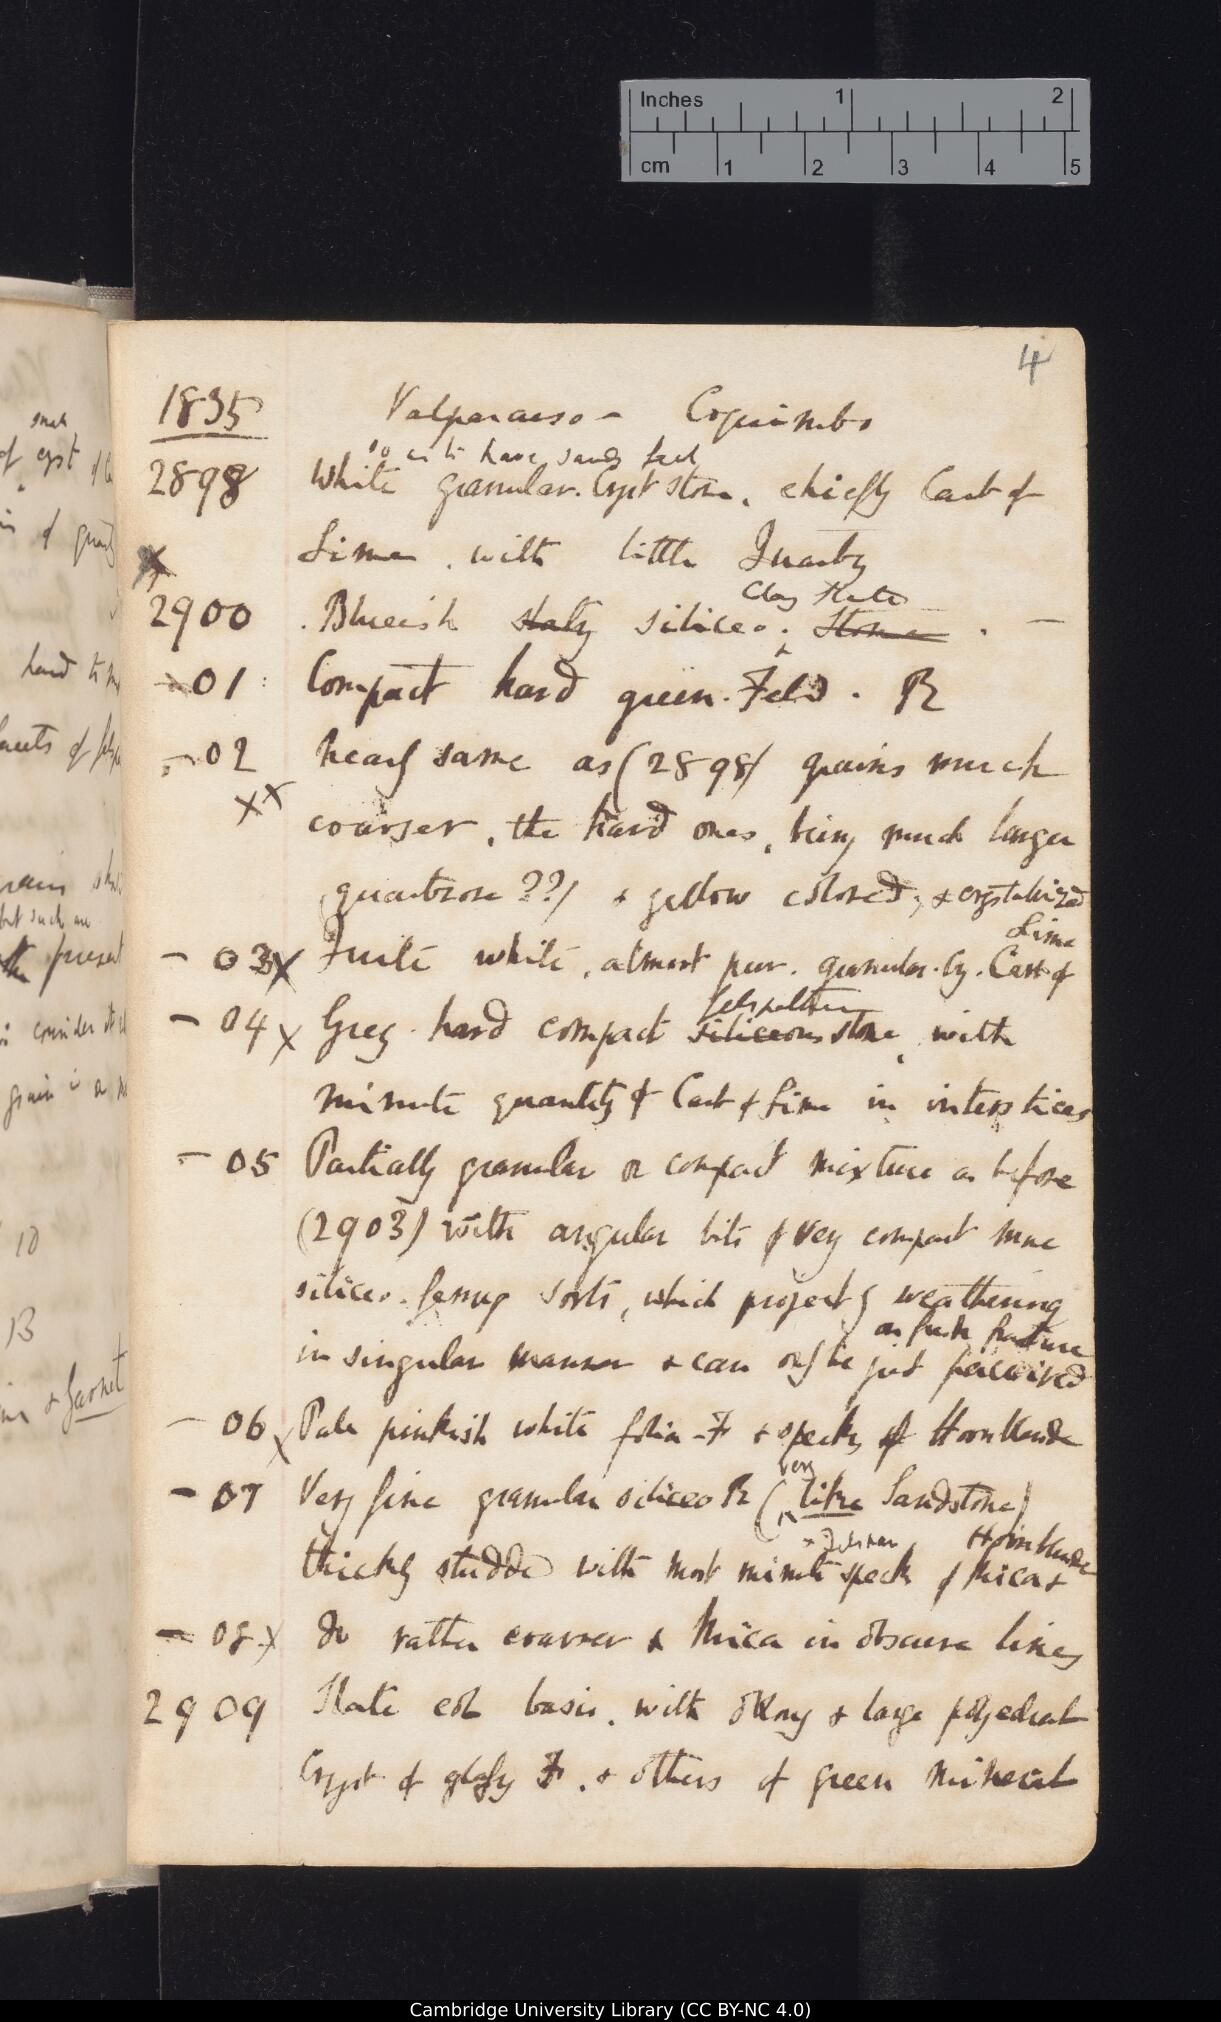 Inches 1 2
cm 1 2 3 4 5
4
1835 Valparaiso – Coquimbo
so as to have sandy feel
2898 White granular. Cryst stone. chiefly Carb of
Lime. with little Quartz
Clay Slate
2900 . Blueish slaty siliceo. Stone . —
– 01 Compact hard green. Feld. R
– 02 nearly same as (2898) grains much
xx coarser, the hard ones, being much larger
(quartzose ??) & yellow colored, & crystallized
Lime
– 03 x Quite white, almost pure. granular. cry. Carb of
Felspathic
– 04 x Grey hard compact siliceous stone, with
minute quantity of Carb of Lime in interstices
– 05 Partially granular or compact mixture as before
(2903) with angular bits of very compact more
siliceo. ferrug sorts, which project by weathering
on fresh fracture
in singular manner & can only be just perceived
– 06 x Pale pinkish white folia – F & specks of Hornblende
very
– 07 Very fine granular siliceo R ( like Sandstone)
Hornblende
thickly studded with most minute specks of Mica &
– 08 x Do rather coarser & Mica in obscure lines
2909 Slate col basis. with oblong & large polyedral
Cryst of glassy F. & others of green mineral
of cryst
hard to
of
present
consider
grain is a
10
13
& Garnet
Cambridge University Library (CC BY-NC 4.0)